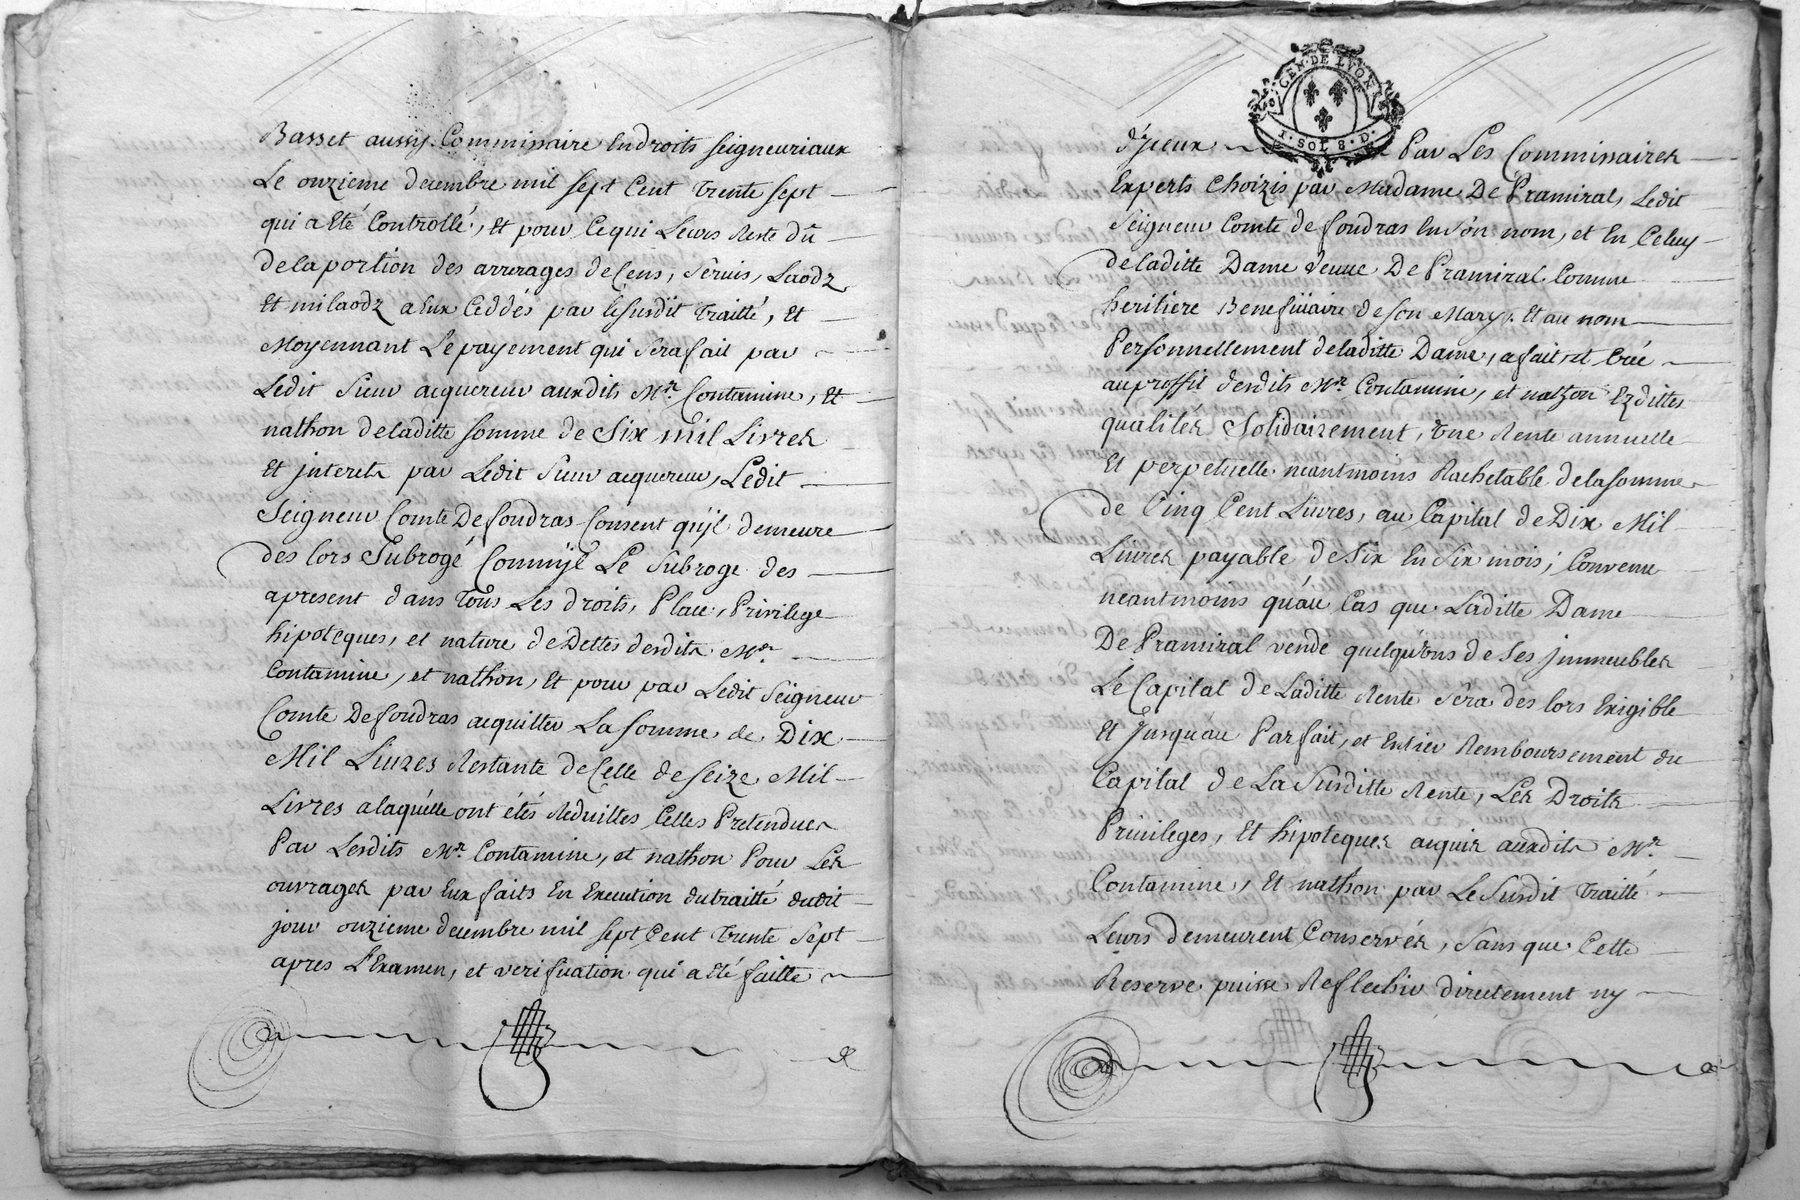 Basset aussy Commissaire En droits seigneuriaux
Le onzieme decembre mil sept Cent trente sept
qui a Eté Controllé, Et pour Ce qui Leurs Reste dû
de la portion des arrerages de Cens, servis, Laodz
Et milaodz a Eux Ceddés par le susdit traitté, Et
Moyennant Le payement qui sera fait par
Ledit sieur acquereur auxdits Mrs. Contamine, Et
nathon de la ditte somme de Six mil Livres
Et jnterets par Ledit sieur acquereur, Ledit
Seigneur Comte De foudras Consent qu'jl demeure
des lors Subrogé Comm'jl Le Subroge des
apresent dans tous Les droits, Place, Privilege
hipoteques, et nature de Dettes desdits Mrs.
Contamine, et nathon, Et pour par Ledit Seigneur
Comte De foudras acquitter La somme de Dix
Mil Livres Restante de Celle de seize Mil
Livres a laquelle ont étés Reduittes Celles Pretendues
Par Lesdits Mrs. Contamine, et nathon Pour Les
ouvrages par Eux faits En Execution du traitté dudit
jour onzieme decembre mil sept Cent trente sept
apres L'Examen, et verification qui a Eté faitte
GEN. DE LYON
1. SOL 8. D.
d'yceux Par Les Commissaires
Experts Choizis par Madame De Pramiral, Ledit
Seigneur Comte de foudras En son nom, et En Celuy
de laditte Dame veuve De Pramiral Comme
heritiere Beneficiaire de son Mary, Et au nom
Personnellement de laditte Dame, a fait, et Créé
au proffit desdits Mrs. Contamine, et nathon Ezdittes
qualites Solidairement, Une Rente annuelle
Et perpetuelle neantmoins Rachetable de la somme
de Cinq Cent Livres, au Capital de Dix Mil
Livres payable de Six En Six mois; Convenu
neantmoins qu'au Cas que Laditte Dame
De Pramiral vende quelqu'uns de Ses jmmeubles
Le Capital de Laditte Rente sera des lors Exigible
Et Jusqu'au Parfait, et Entier Remboursement du
Capital de La Susditte Rente, Les Droits
Privileges, Et hipoteques acquis auxdits Mrs.
Contamine, Et nathon par Le Susdit traitté
Leurs demeurent Conservés, Sans que Cette
Reserve puisse Reflechir directement ny